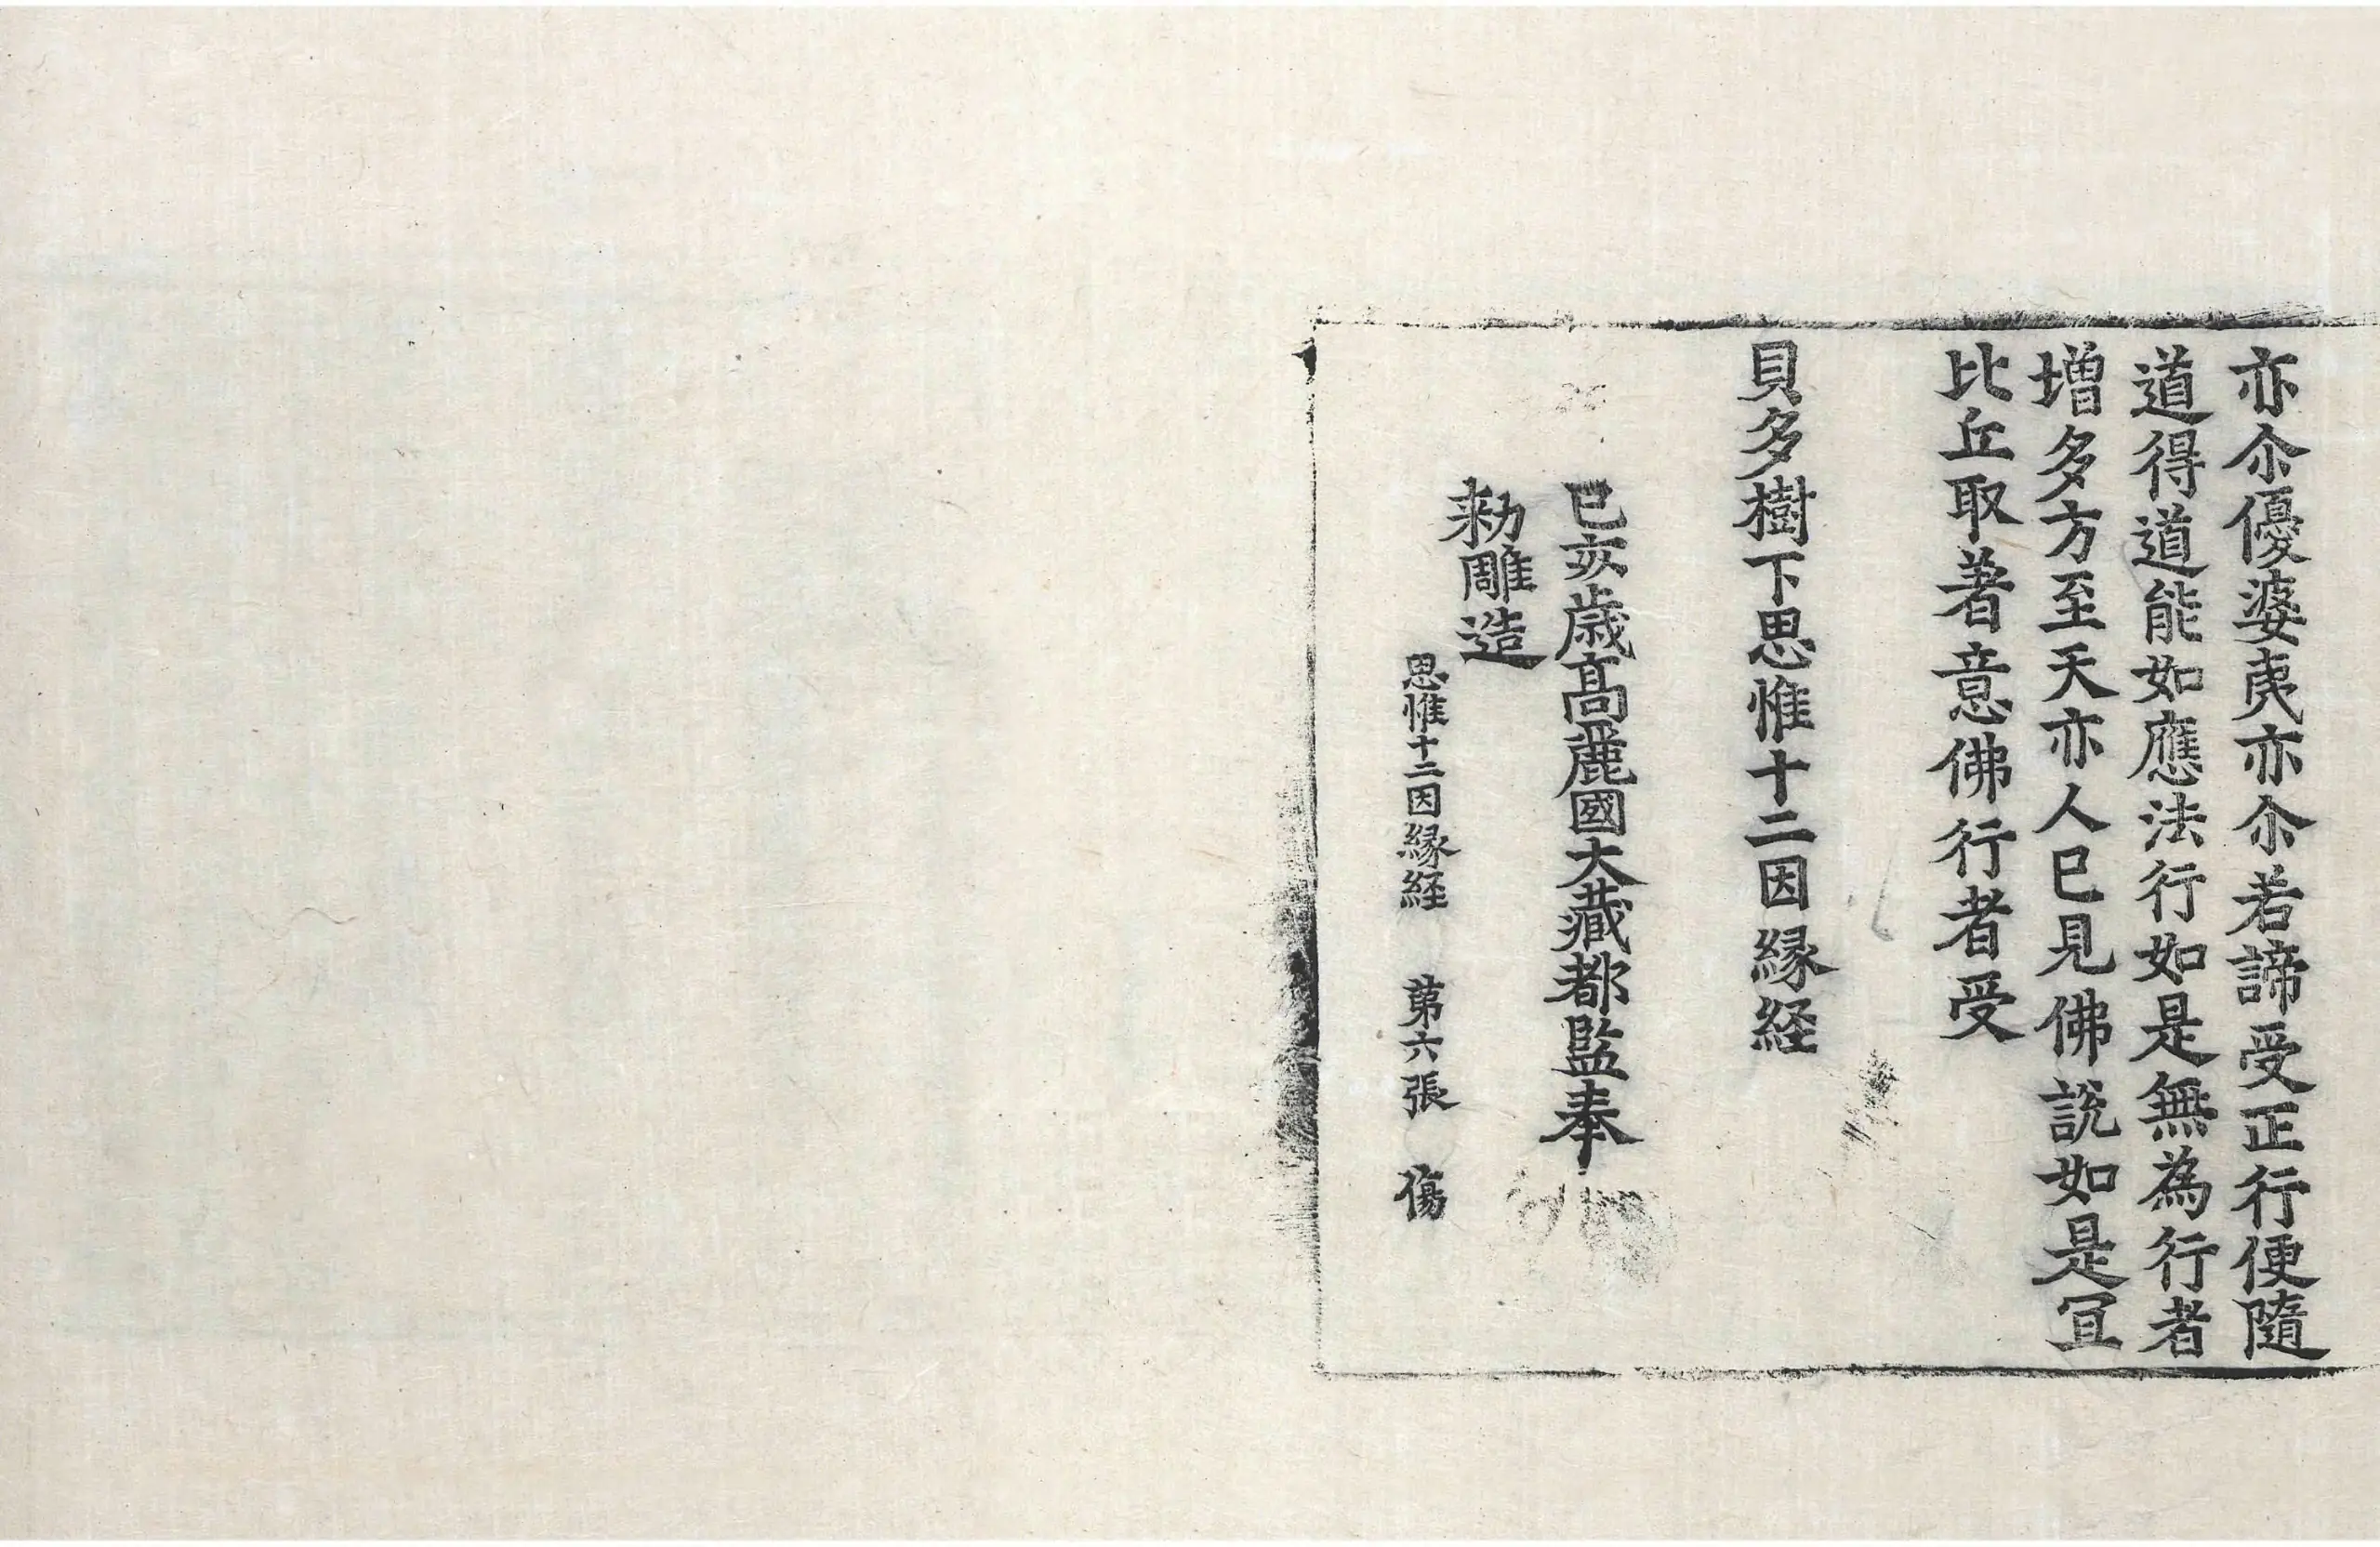 亦尒優婆夷亦尒若諦受正行便隨
道得道能如應法行如是無為行者
増多方至天亦人已見佛說如是冝
比丘取著意佛行者受
貝多樹下思惟十二因縁経
己亥歳髙麗國大藏都監奉
勑雕造
思惟十二因縁経　第六張　傷